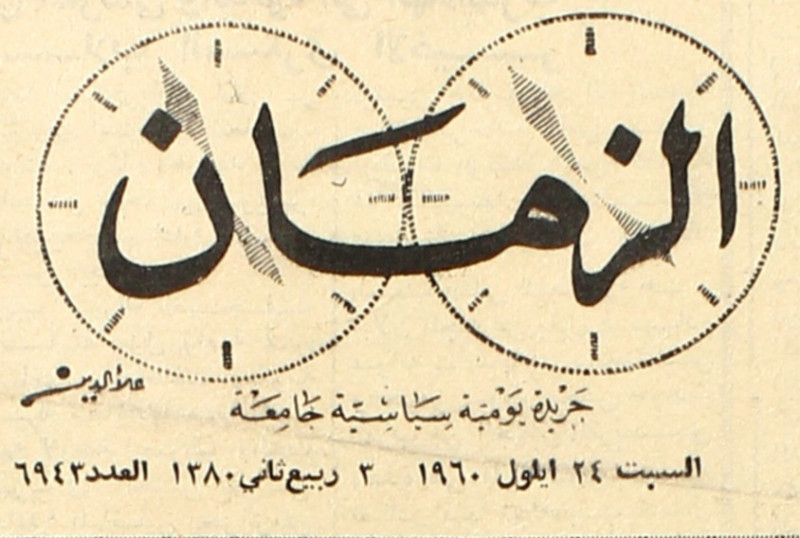 الزمان
علاء الدين
جريدة يومية سياسية جامعة
السبت ٢٤ ايلول ١٩٦٠ ٣ ربيع ثاني ١٣٨٠ العدد ٦٩٤٣